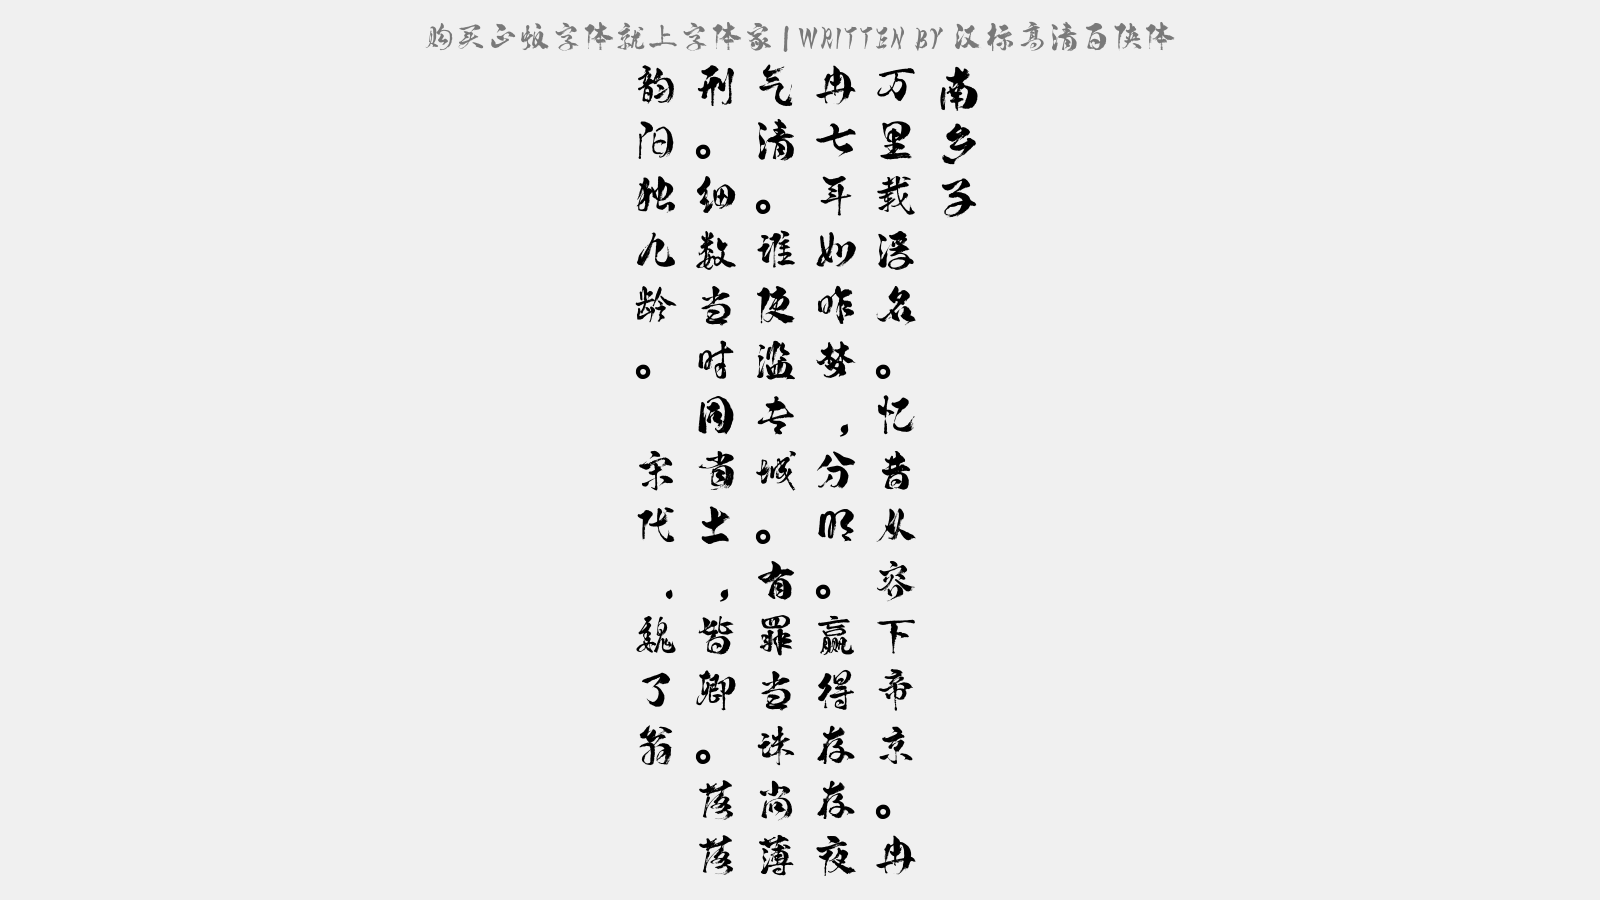 购买正版字体就上字体家 | WRITTEN BY 汉标高清百侠体
南乡子
万里载浮名。忆昔从容下帝京。冉
冉七年如昨梦，分明。赢得存存夜
气清。谁使滥专城。有罪当诛尚薄
刑。细数当时同省士，皆卿。落落
韶阳独九龄。 宋代.魏了翁